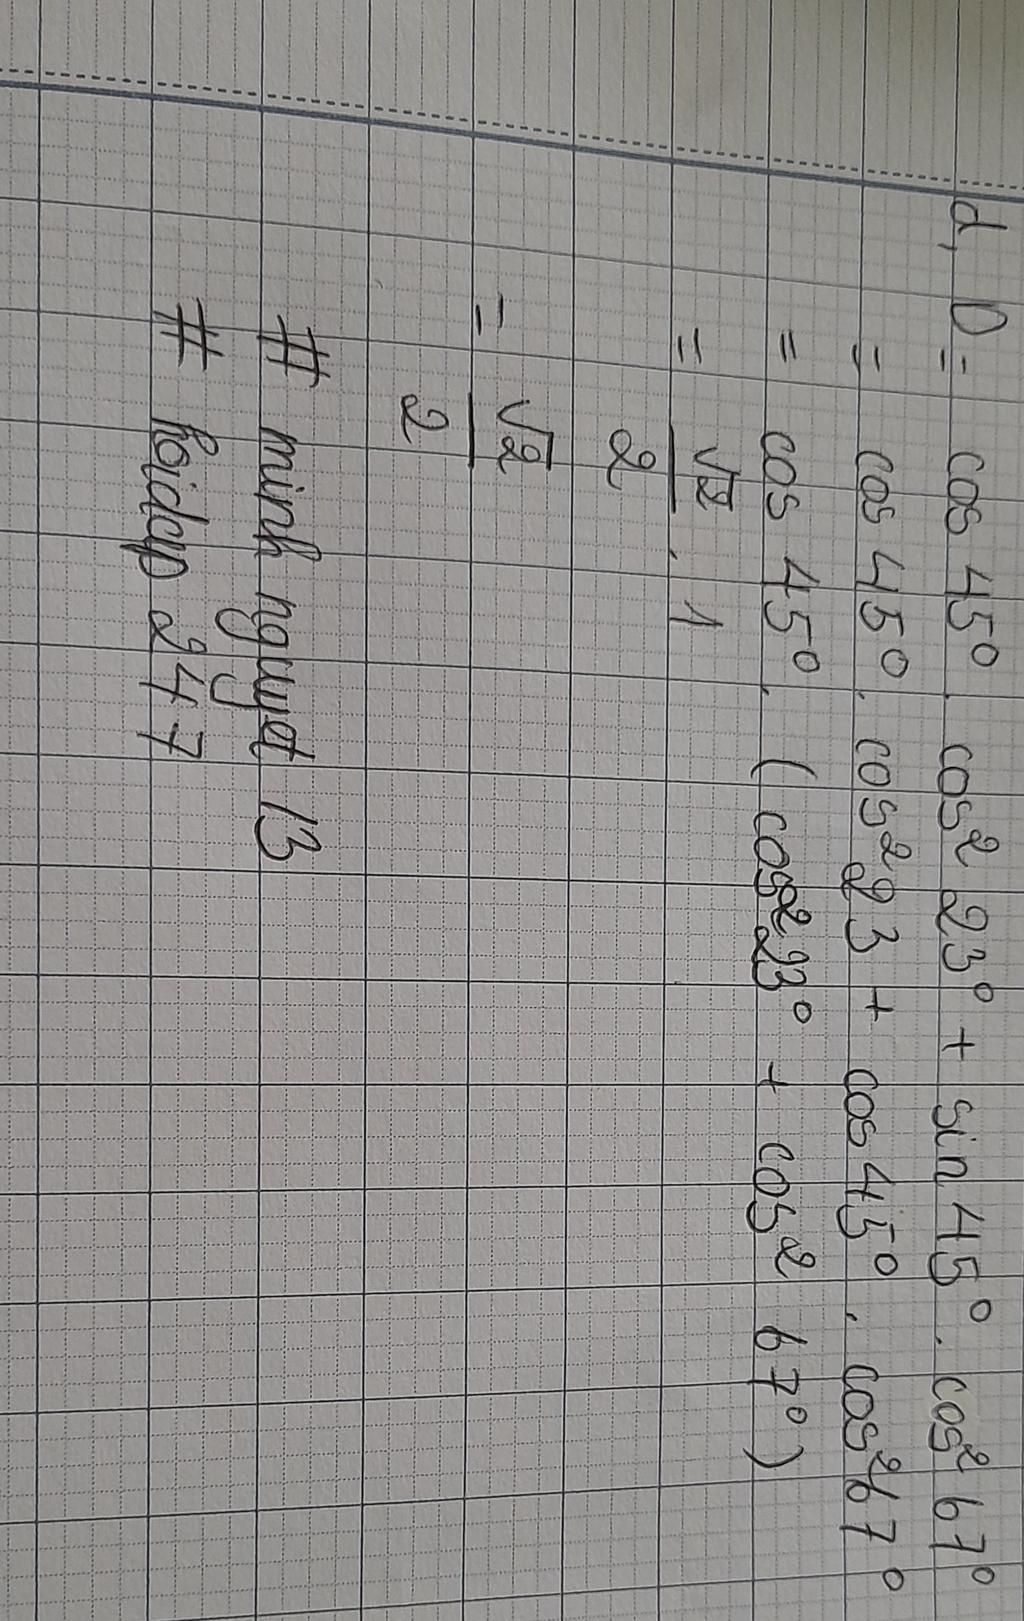 d, D = cos 45° . cos² 23° + sin 45° . cos² 67°
= cos 45° . cos² 23 + cos 45° . cos² 67°
= cos 45° . ( cos² 23° + cos² 67° )
= √2/2 . 1
= √2/2
# minh nguyet 13
# hoidap 247